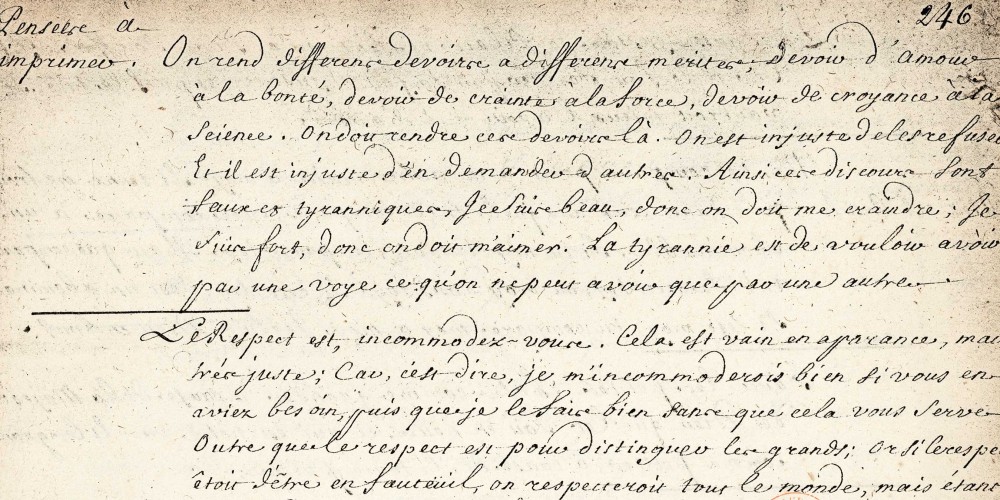 246
Pensées a
imprimer.
On rend differens devoirs a differens merites, devoir d'amour
à la bonté, devoir de crainte à la force, devoir de croyance à la
science. On doit rendre ces devoirs là. On est injuste de les refuser
Et il est injuste d'en demander d'autres. Ainsi ces discours sont
faux et tyranniques, Je suis beau, donc on doit me craindre; Je
suis fort, donc on doit m'aimer. La tyrannie est de vouloir avoir
par une voye ce qu'on ne peut avoir que par une autre
Le Respect est, incommodez-vous. Cela est vain en aparance, mais
trés juste; Car, c'est dire, je m'incommoderois bien si vous en
aviez besoin, puis que je le fais bien sans que cela vous serve
Outre que le respect est pour distinguer les grands; Or si le respe
étoit d'étre en fauteuil, on respecteroit tout le monde, mais étant